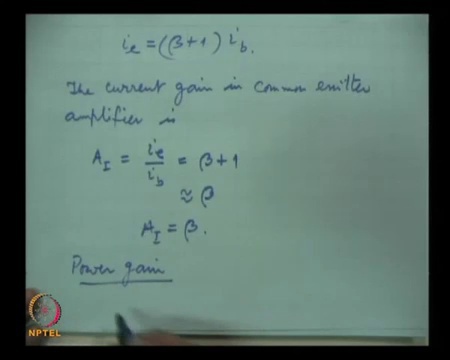 ie = (β+1) ib.
The current gain in common emitter
amplifier is
AI = ie/ib = β+1
≈ β
AI = β.
Power gain
NPTEL